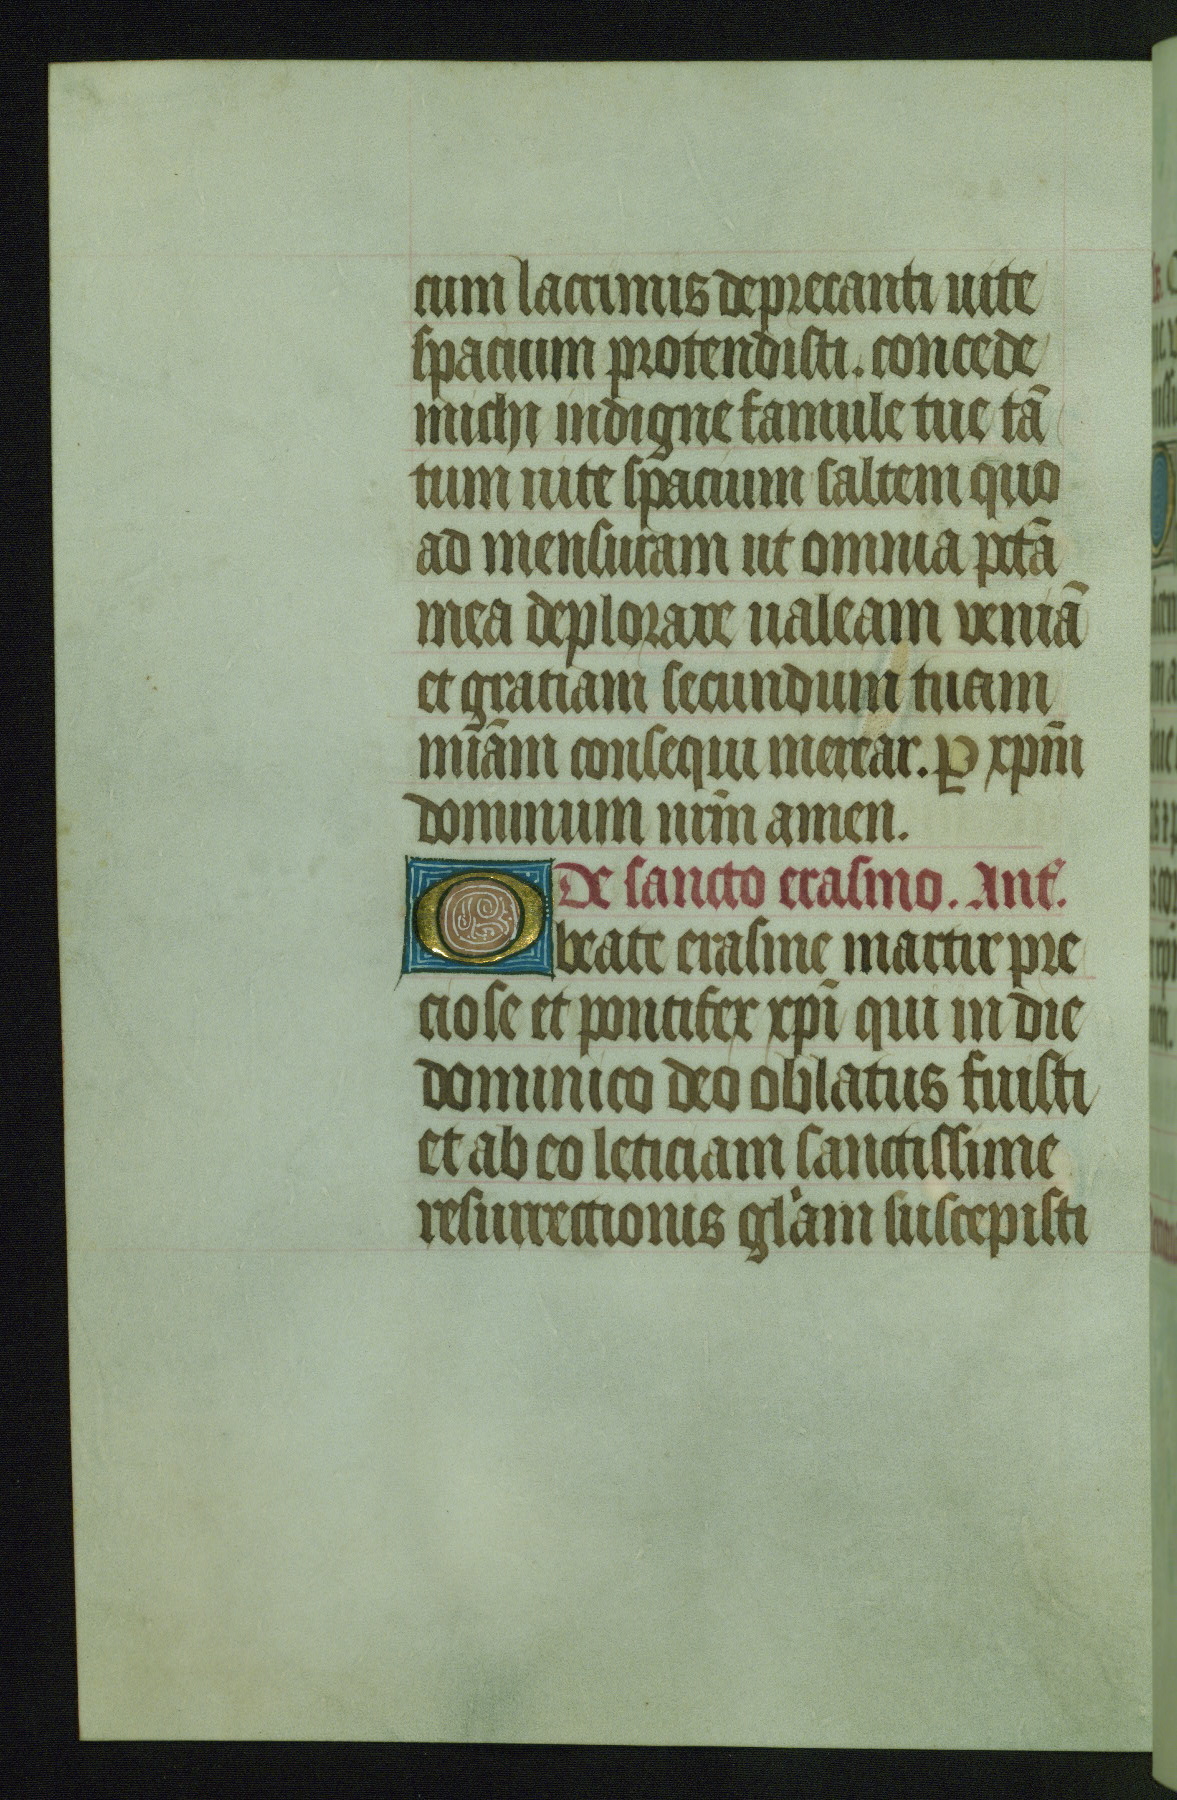 cum lacrimis deprecanti uite
spacium protendisti. concede
michi indigne famule tue tā
tum uite spacium saltem quo
ad mensuram ut omnia pctā
mea deplorare ualeam veniā
et gratiam secundum tuam
mīam consequi merear. ꝑ xpm̄
dominum nrm̄ amen.
De sancto erasmo. Ant̄.
O beate erasme martir pre
ciose et pontifex xpī qui in die
dominico deo oblatus fuisti
et ab eo leticiam sanctissime
resurrectionis gl'am suscepisti